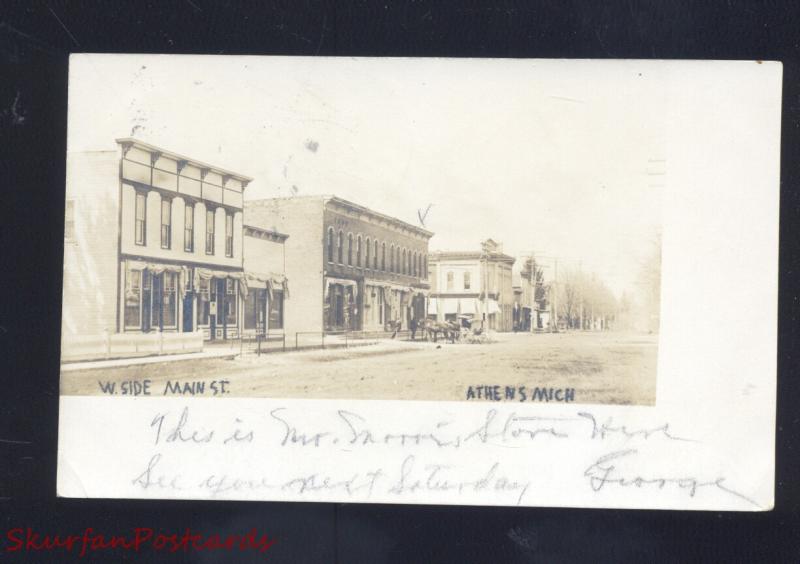 W. SIDE MAIN ST.
ATHENS MICH
This is Mr. Morris Store Here
See you next Saturday
George
SkurfanPostcards